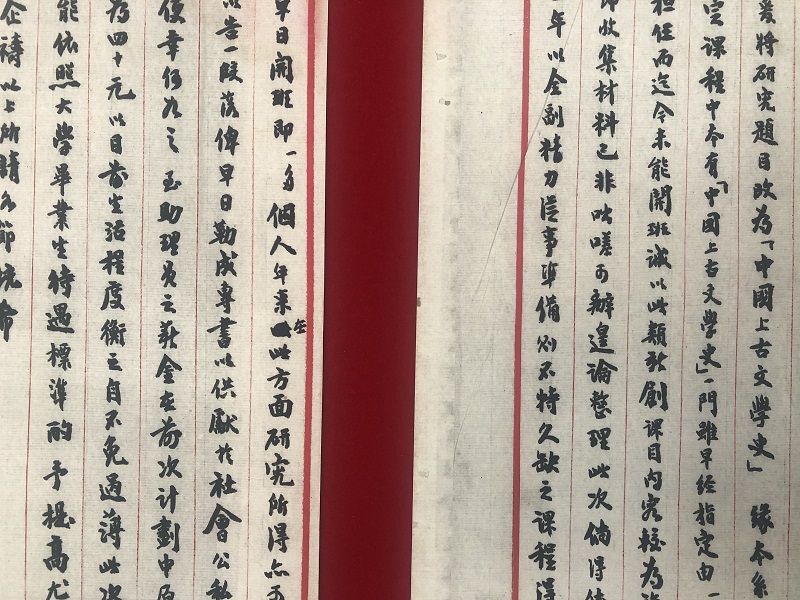 爰將研究題目改為「中國上古文學史」緣本系
定課程中本有「中國上古文學史」一門雖早經指定由一
担任而迄今未能開班誠以此類新創課目內容較為
即收集材料已非咄嗟可辦遑論整理此次倘得
年以全副精力從事準備則不特久缺之課程得
早日開班即一多個人年來在此方面研究所得亦
以告一段落俾早日勒成專書以供獻於社會公私
便幸仍九之至助理員之薪金在前次計劃中原
為四十元以目前生活程度衡之自不免過薄此次
能依照大學畢業生待遇標準酌予提高尤
企禱以上所請各節統希